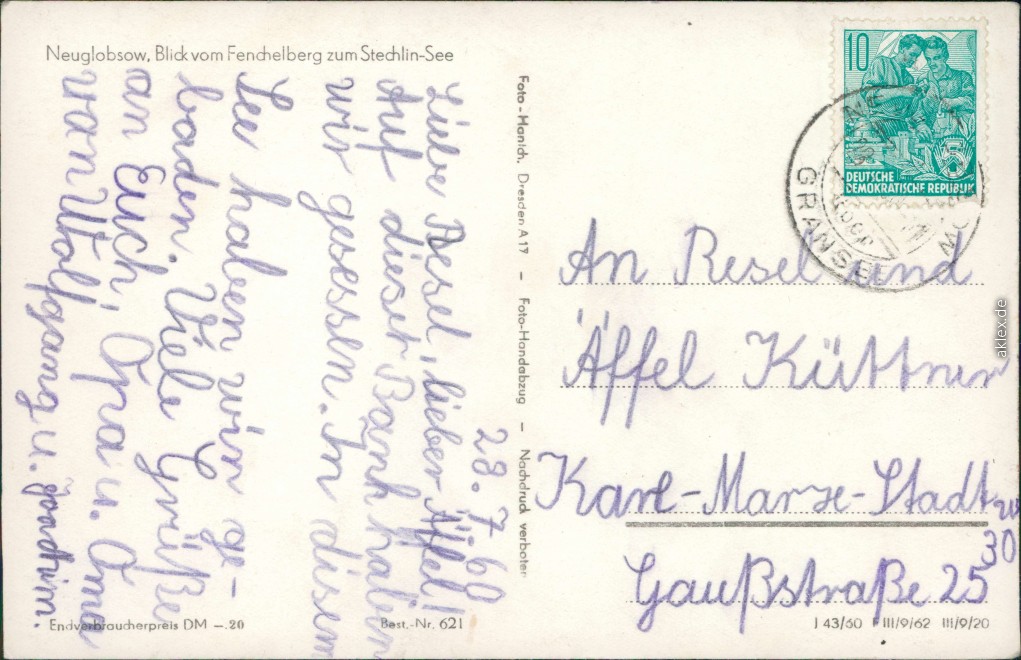 Neuglobsow, Blick vom Fenchelberg zum Stechlin-See
28.7.60
Liebe Resel, lieber Äffel!
Auf dieser Bank haben
wir gesessen. In disem
See haben wir ge-
baden. Viele Grüße
an Euch, Opa u. Oma
von Wolfgang u. Joachim.
Endverbraucherpreis DM —.20
Best.-Nr. 621
Foto-Manich, Dresden A 17 – Foto-Handabzug – Nachdruck verboten
10
DEUTSCHE
DEMOKRATISCHE REPUBLIK
GRANSEE
An Resel und
Äffel Küttner
Karl-Marx-Stadt
30
Gaußstraße 25
J 43/60 III/9/62 III/9/20
aklex.de